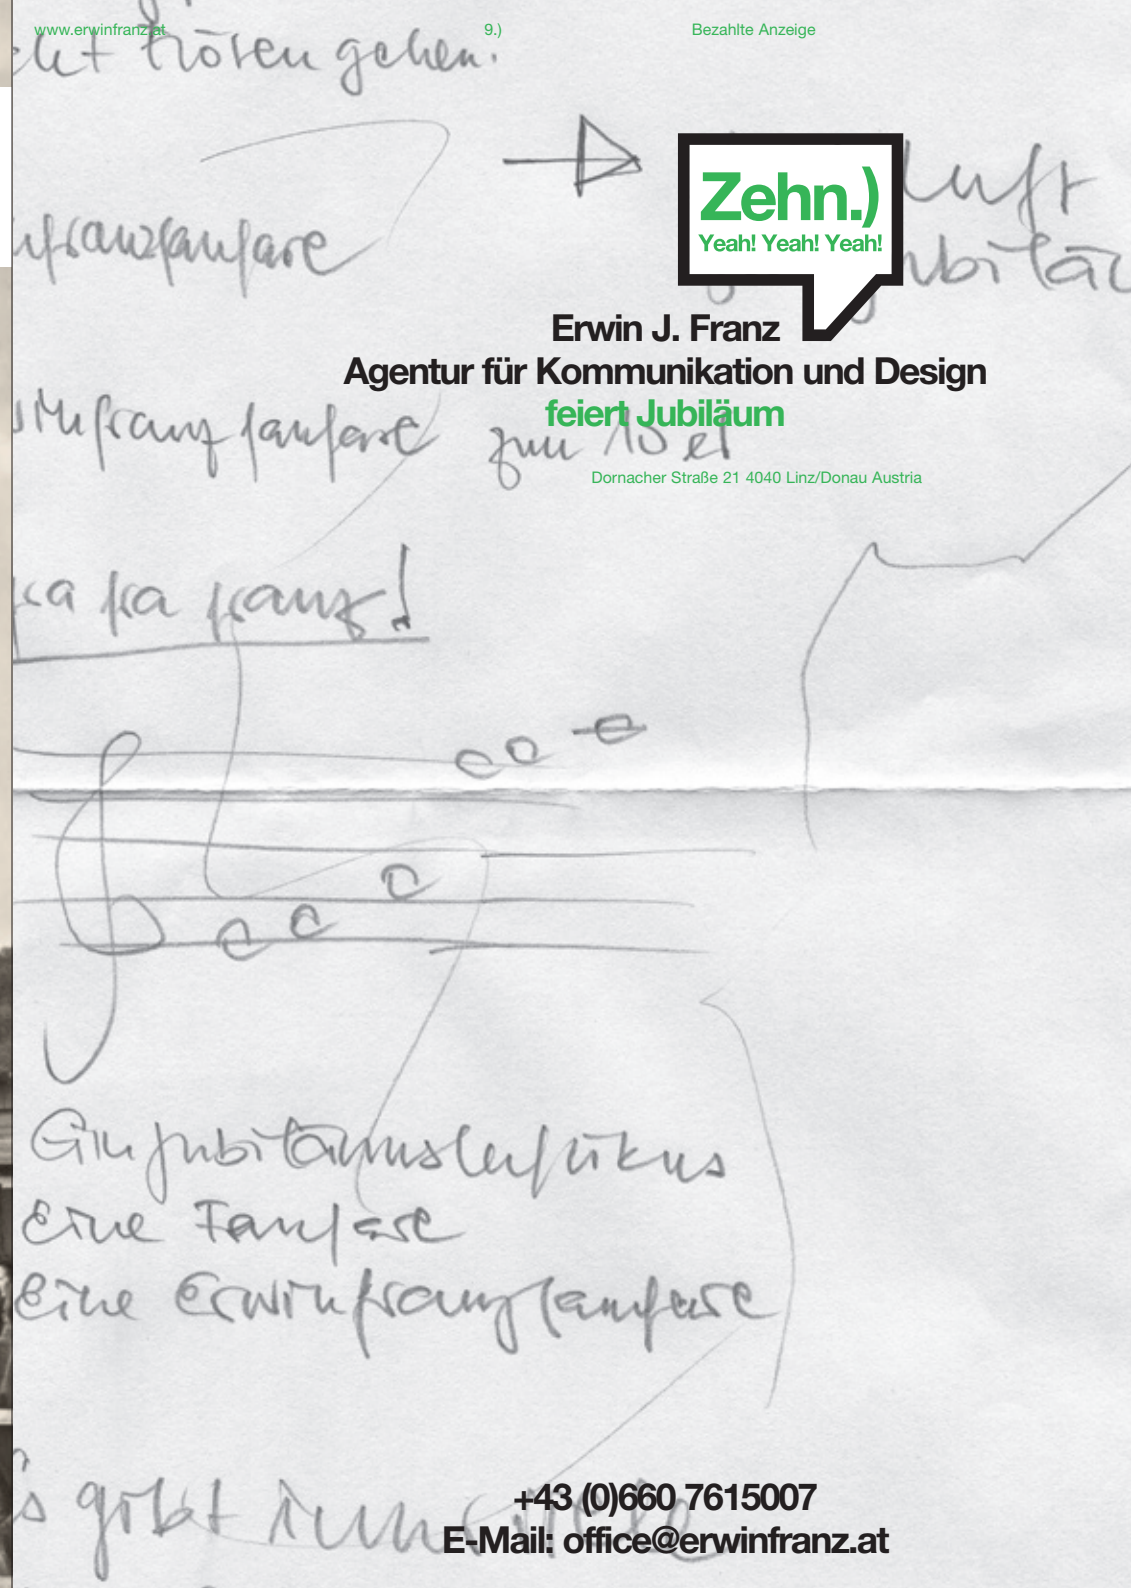 www.erwinfranz.at 9.) Bezahlte Anzeige
hören gehen.
Zehn.)
Yeah! Yeah! Yeah!
franzfanfare
Erwin J. Franz
Agentur für Kommunikation und Design
feiert Jubiläum
franzfanfare zum 10er
Dornacher Straße 21 4040 Linz/Donau Austria
fra franz!
Ein
Eine Fanfare
Eine Erwinfranzfanfare
gibt
+43 (0)660 7615007
E-Mail: office@erwinfranz.at